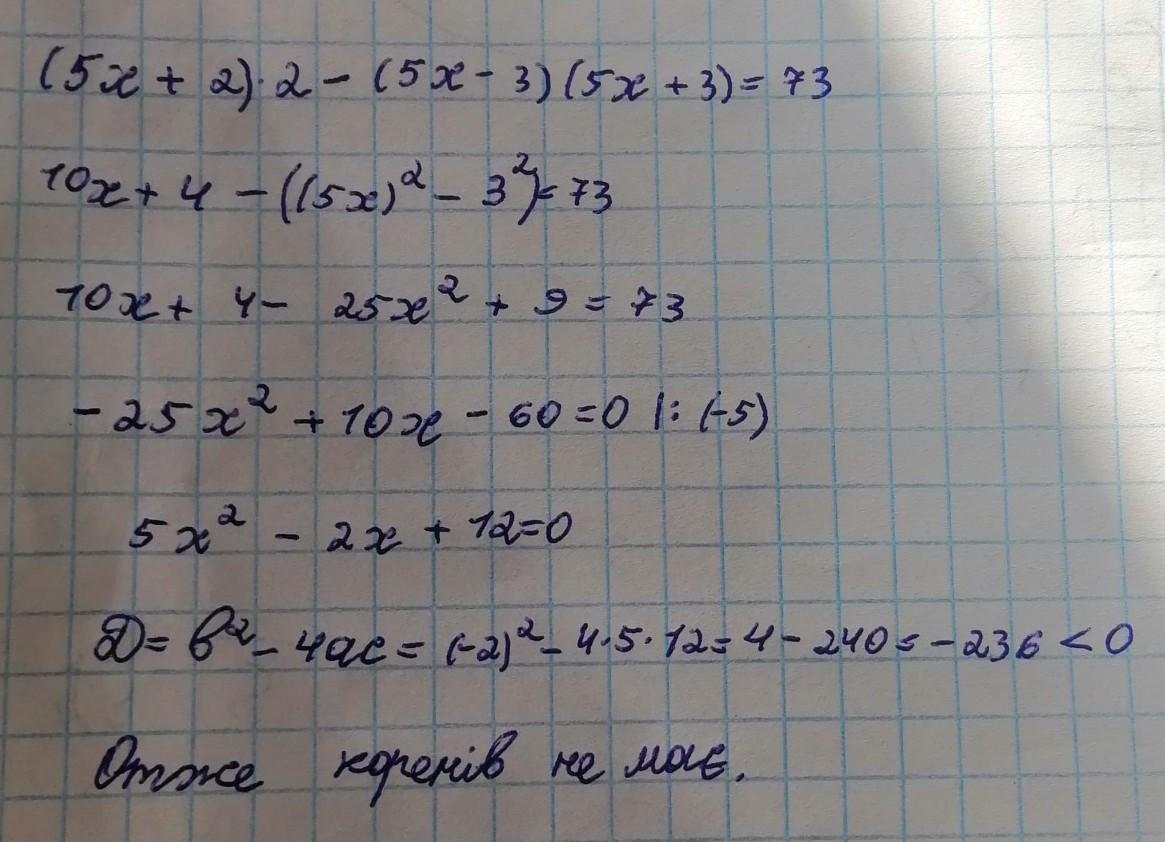 (5x + 2)·2 - (5x - 3)(5x + 3) = 73
10x + 4 - ((5x)² - 3²) = 73
10x + 4 - 25x² + 9 = 73
-25x² + 10x - 60 = 0 |: (-5)
5x² - 2x + 12 = 0
D = b² - 4ac = (-2)² - 4·5·12 = 4 - 240 = -236 < 0
Отже коренів не має.